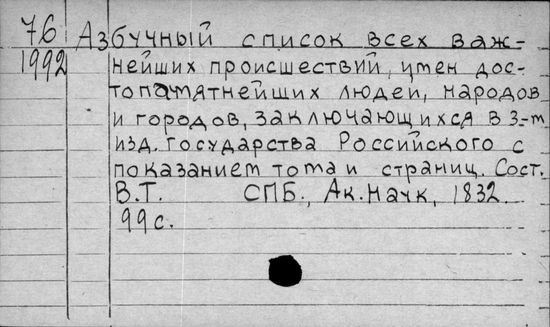 76 Азбучный список всех важ-
1992 нейших происшествий, имен дос-
топамятнейших людей, народов
и городов, заключающихся в 3-м
изд. Государства Российского с
показанием тома и страниц. Сост.
В.Т. СПБ., Ак. Наук, 1832.
99 с.